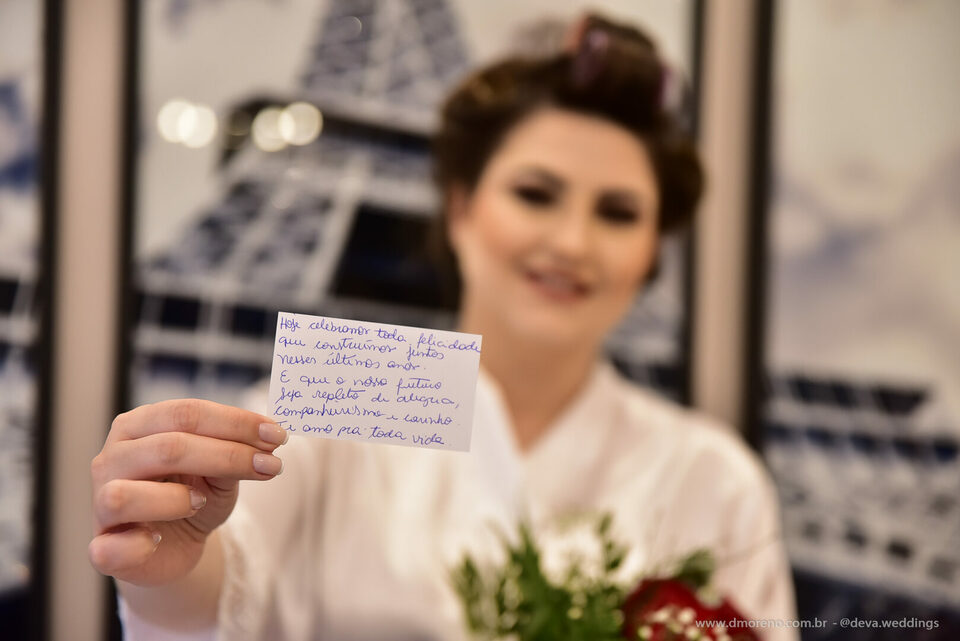 Hoje celebramos toda felicidade
que construímos juntos
nesses últimos anos.
E que o nosso futuro
seja repleto de alegria,
companheirismo e carinho.
Te amo pra toda vida.
www.dmoreno.com.br - @deva.weddings